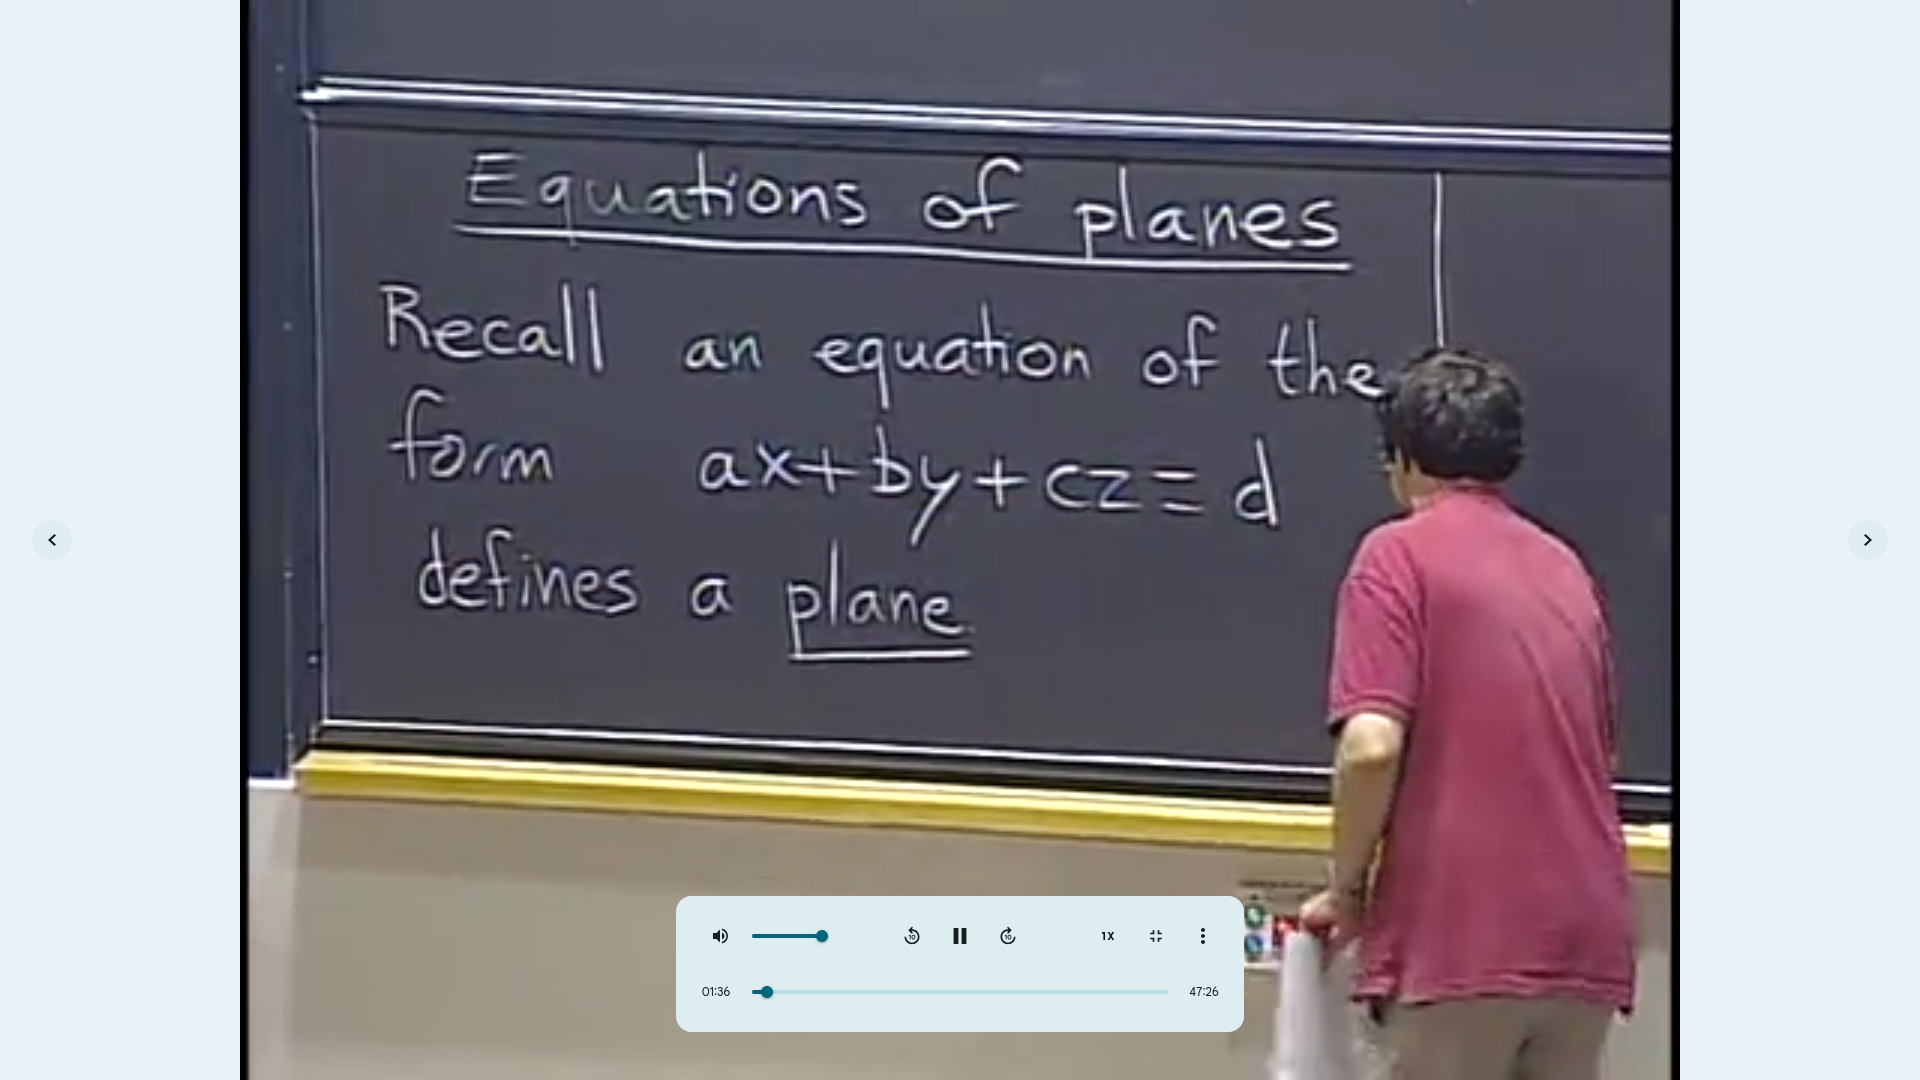 Equations of planes
Recall an equation of the
form ax+by+cz=d
defines a plane
10 10 1X
01:36 47:26